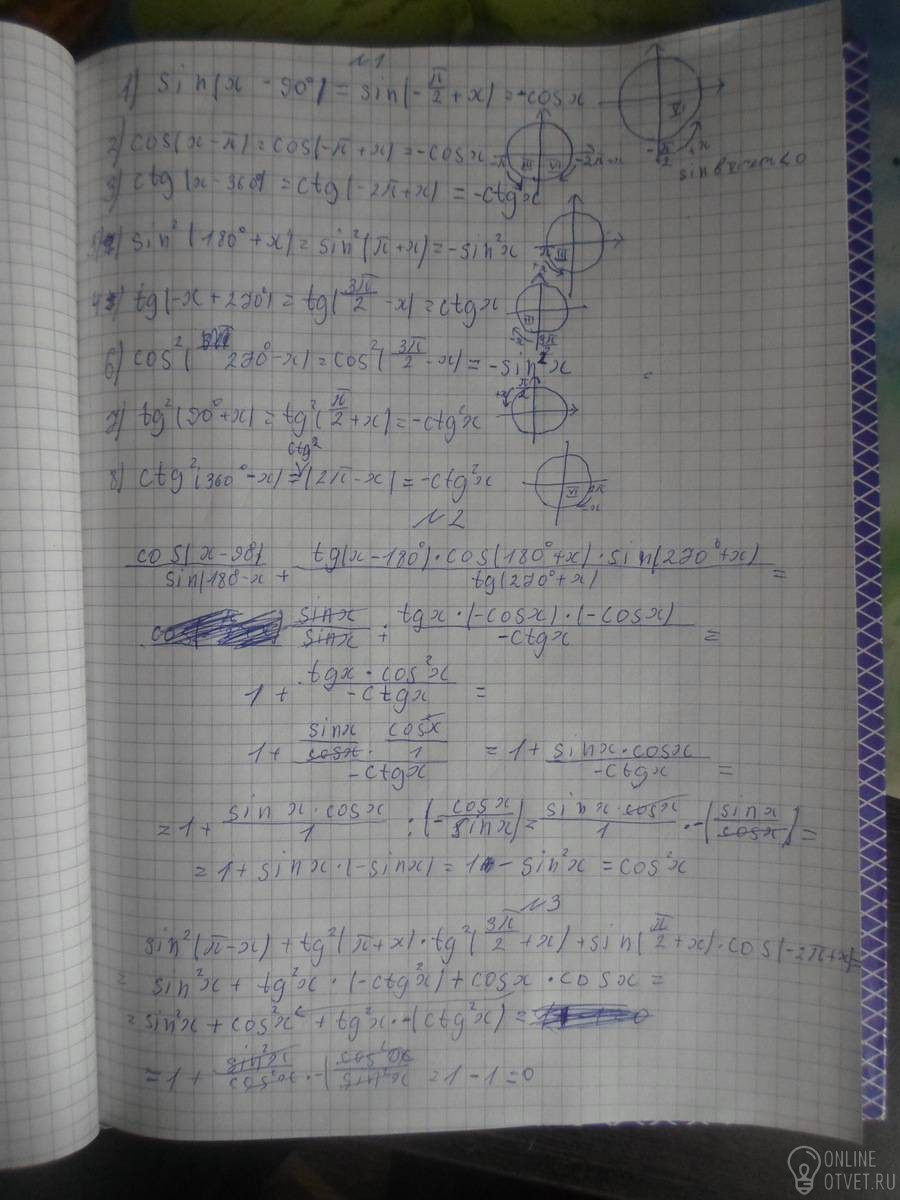 №1
1) sin(x - 90°) = sin(-π/2 + x) = -cos x
2) cos(x - π) = cos(-π + x) = -cos x
3) ctg(x - 360°) = ctg(-2π + x) = -ctg x
sin в VI чет < 0
5) sin²(180° + x) = sin²(π + x) = -sin²x
4) tg(-x + 270°) = tg(3π/2 - x) = ctg x
6) cos²(270° - x) = cos²(3π/2 - x) = -sin²x
7) tg²(90° + x) = tg²(π/2 + x) = -ctg²x
8) ctg²(360° - x) = ctg²(2π - x) = -ctg²x
№2
cos(x - 90)/sin(180 - x + tg(x - 180°) · cos(180° + x) · sin(270° + x)/tg(270° + x) =
sin x/sin x + tg x · (-cos x) · (-cos x)/-ctg x =
1 + tg x · cos²x/-ctg x =
1 + sin x/cos x · cos²x/1/-ctg x = 1 + sin x · cos x/-ctg x =
= 1 + sin x · cos x/1 : (-cos x/sin x) = sin x · cos x/1 · -(sin x/cos x) =
= 1 + sin x · (-sin x) = 1 - sin²x = cos²x
№3
sin²(π - x) + tg²(π + x) · tg²(3π/2 + x) + sin(π/2 + x) · cos(-2π + x) =
= sin²x + tg²x · (-ctg²x) + cos x · cos x =
= sin²x + cos²x + tg²x · -(ctg²x) =
= 1 + sin²x/cos²x · -(cos²x/sin²x = 1 - 1 = 0
ONLINE
OTVET.RU